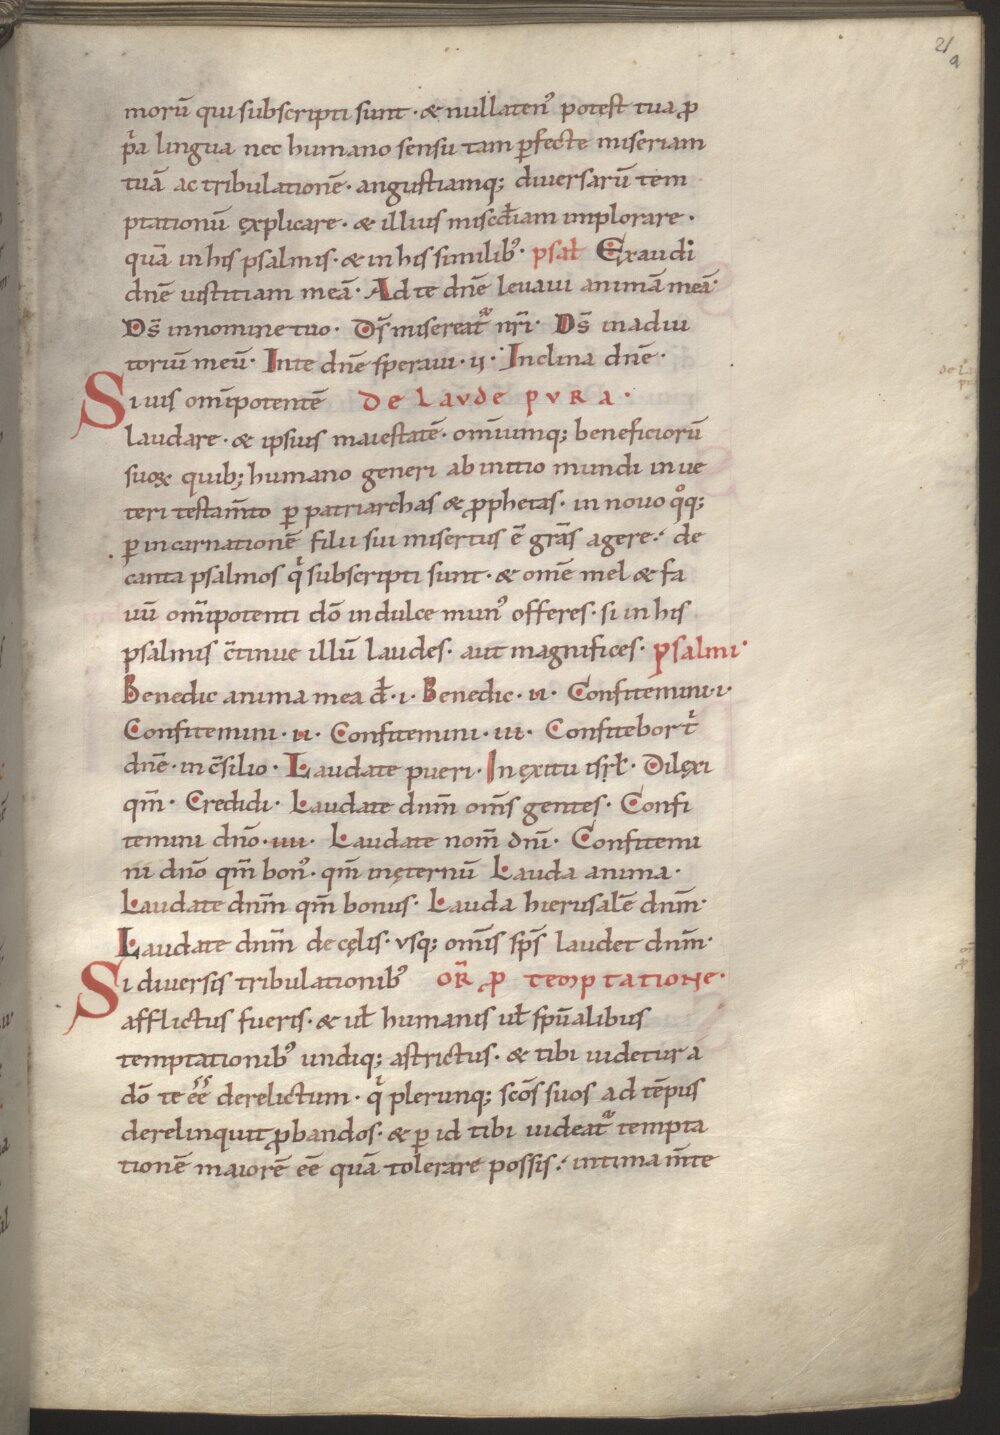 21
a
morū qui subscripti sunt · & nullaten᾿ potest tua ꝓ
p̍a lingua nec humano sensu tam ꝑfecte miseriam
tuā ac tribulationē · angustiamq; diversarū tem
ptationū ęxplicare · & illius misc̄điam implorare ·
quā in his psalmis · & in his similib᾿ · psał Exaudi
dn̄e iustitiam meā · Ad te dn̄e levavi animā meā ·
Ds̄ in nomine tuo · Ds̄ misereat᷑ nr̄i · Ds̄ in adiu
toriū meū · In te dn̄e speravi · ii · Inclina dn̄e ·
Si vis om̄ipotentē De lavde pvra ·
laudare · & ipsius maiestatē · om̄iumq; beneficiorū
suoꝝ quib; humano generi ab initio mundi in ve
teri testam̄to ꝑ patriarchas & ꝓphetas · in novo qͦq;
ꝑ incarnationē filii sui misertus ē grās agere · de
canta psalmos q̍ subscripti sunt · & om̄e mel & fa
vū om̄ipotenti dō in dulce mun᾿ offeres · si in his
psalmis c̄tinue illū laudes · aut magnifices · psalmi ·
Benedic anima mea đ · i · Benedic · ii · Confitemini · i ·
Confitemini · ii · Confitemini · iii · Confitebor t̍
dn̄e · in c̄silio · Laudate pueri · In ęxitu isrł · Dilęxi
qm̄ · Credidi · Laudate dnm̄ om̄s gentes · Confi
temini dn̄o · iiii · Laudate nom̄ dn̄i · Confitemi
ni dn̄o qm̄ bon᾿ · qm̄ in ęternū Lauda anima ·
Laudate dnm̄ qm̄ bonus · Lauda hierusalē dnm̄ ·
Laudate dnm̄ de cęlis · vsq; om̄is sp̄s laudet dnm̄ ·
Si diversis tribulationib᾿ OR̄ ꝓ temptatione ·
afflictus fueris · & uł humanis uł sp̄ualibus
temptationib᾿ undiq; astrictus · & tibi videtur a
dō te ēē derelictum · q̍ plerunq; scōs suos ad tēpus
derelinquit ꝓbandos · & ꝑ id tibi videat᷑ tempta
tionē maiorē eē quā tolerare possis · intima m̄te